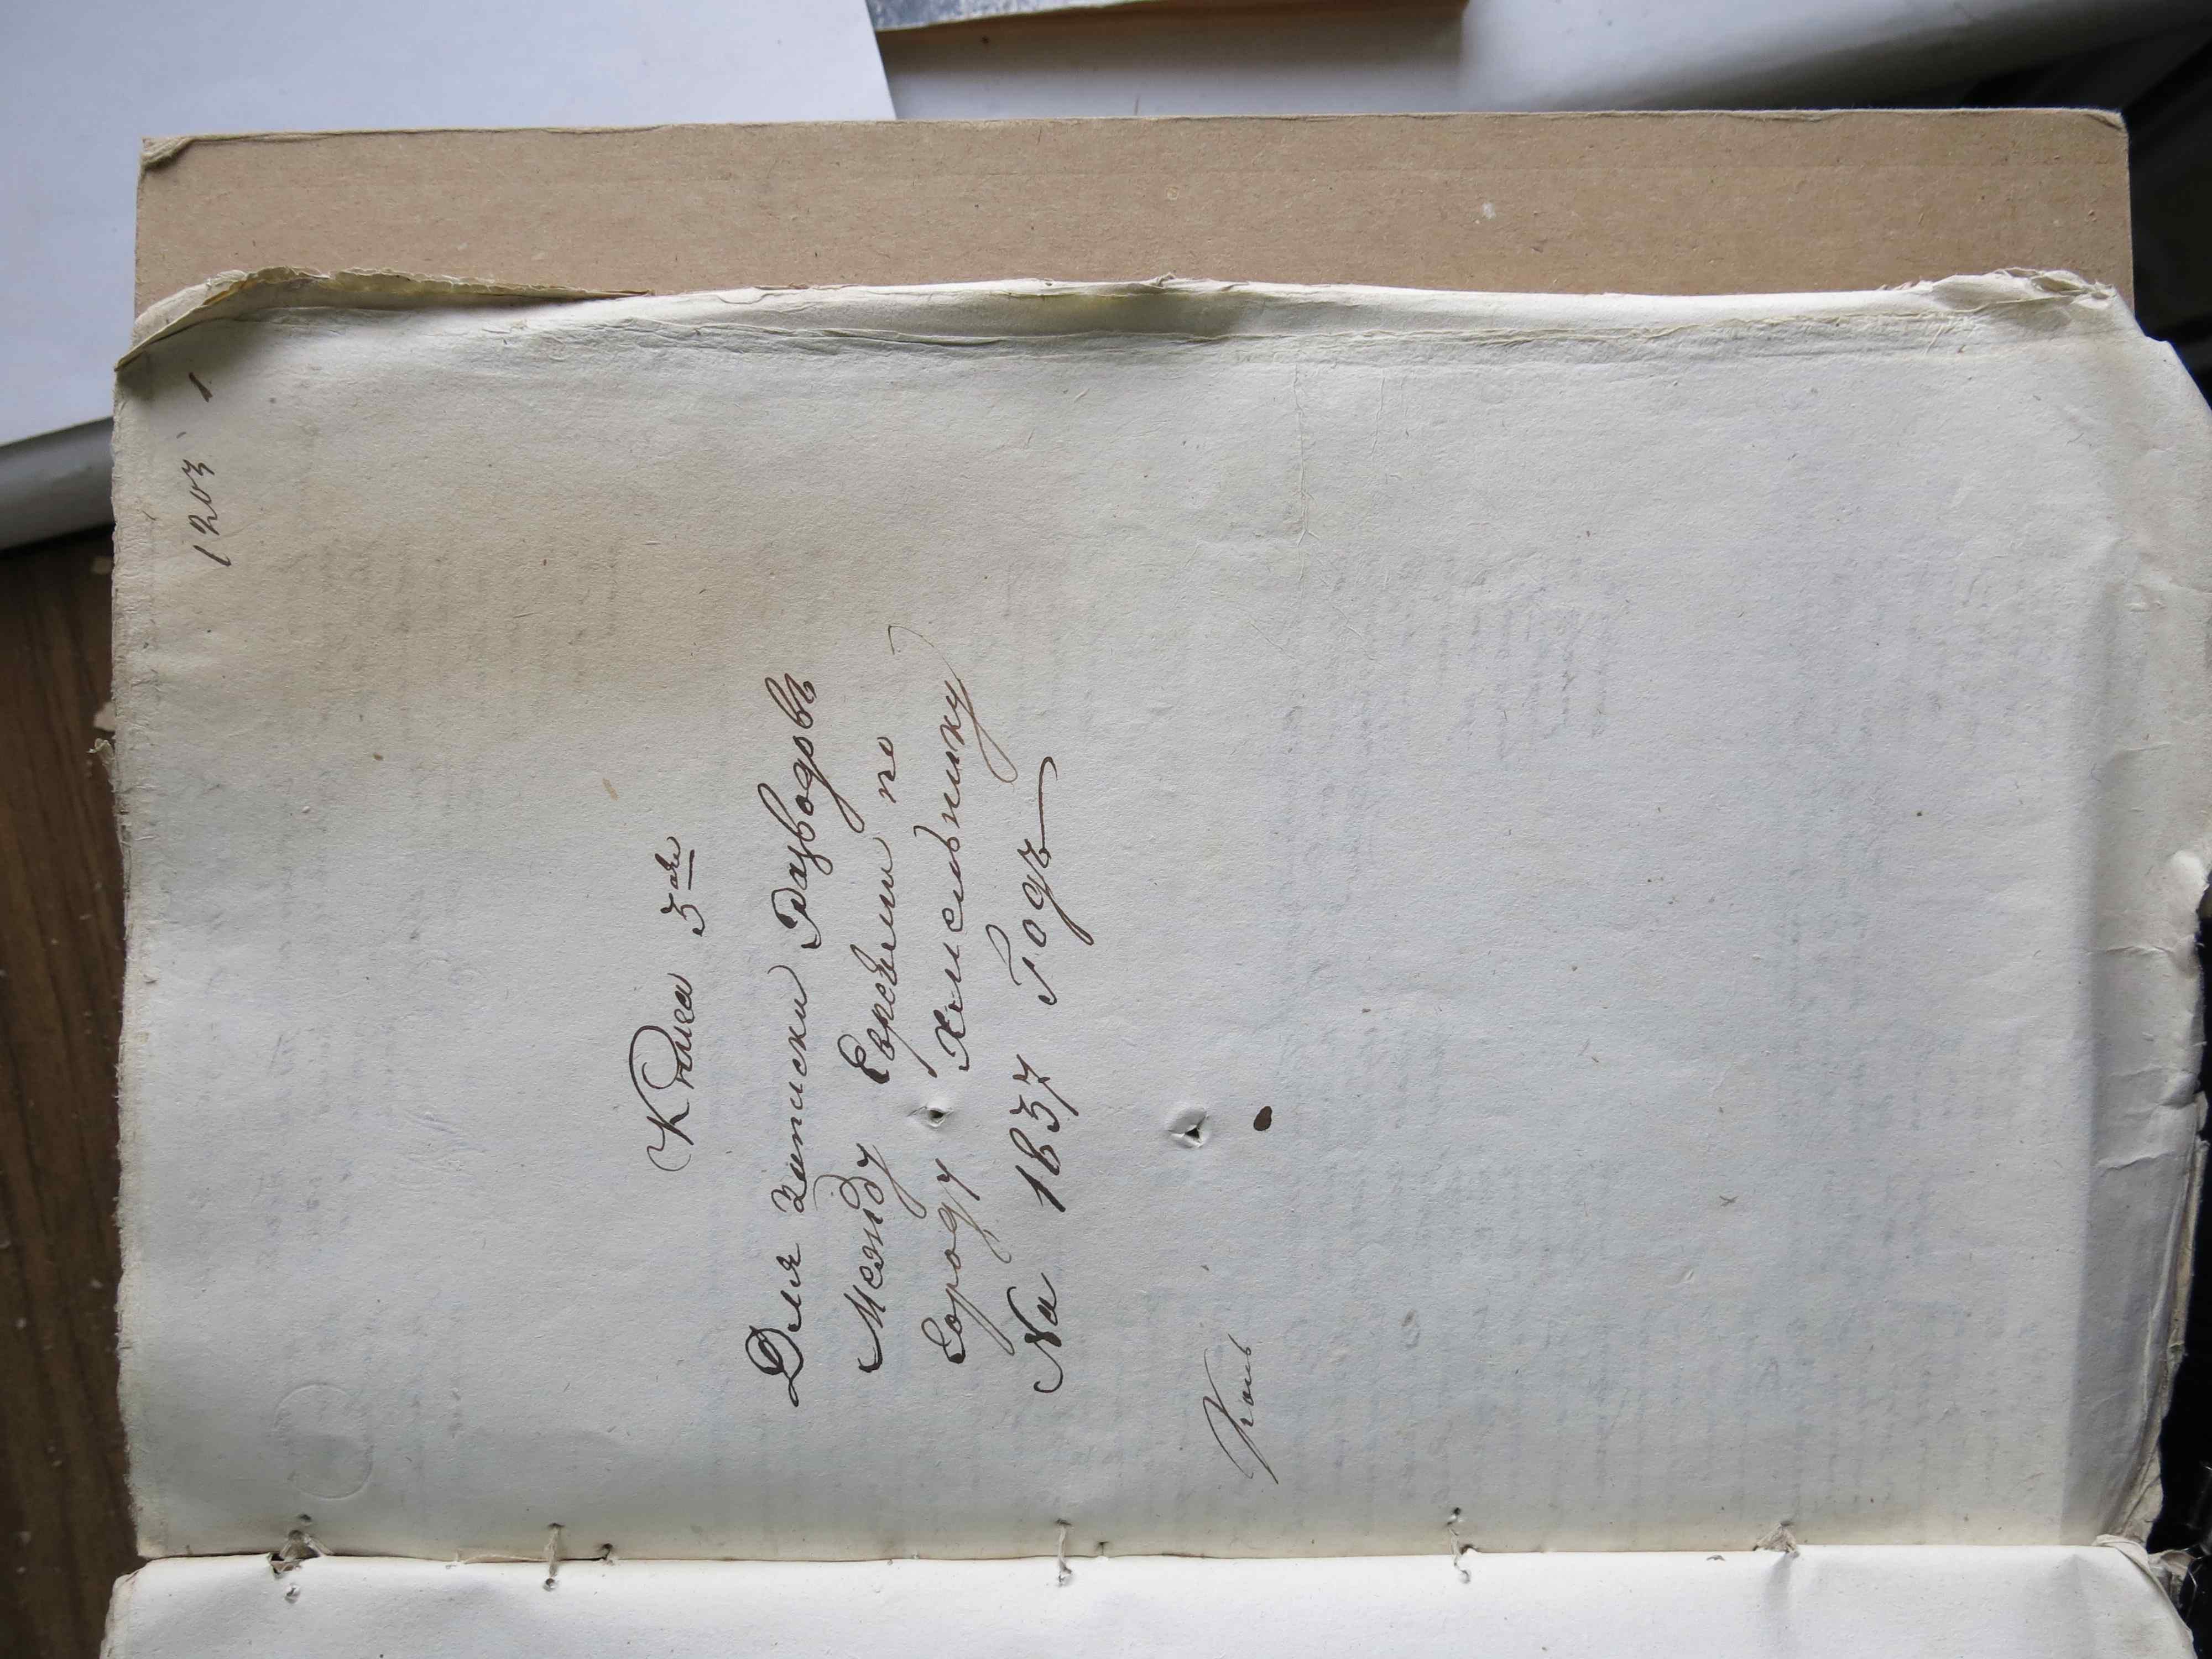 1203 1
Книга 3ая
Для записки Разводовъ
Между Евреями по
городу Хмельнику
На 1837 Годъ